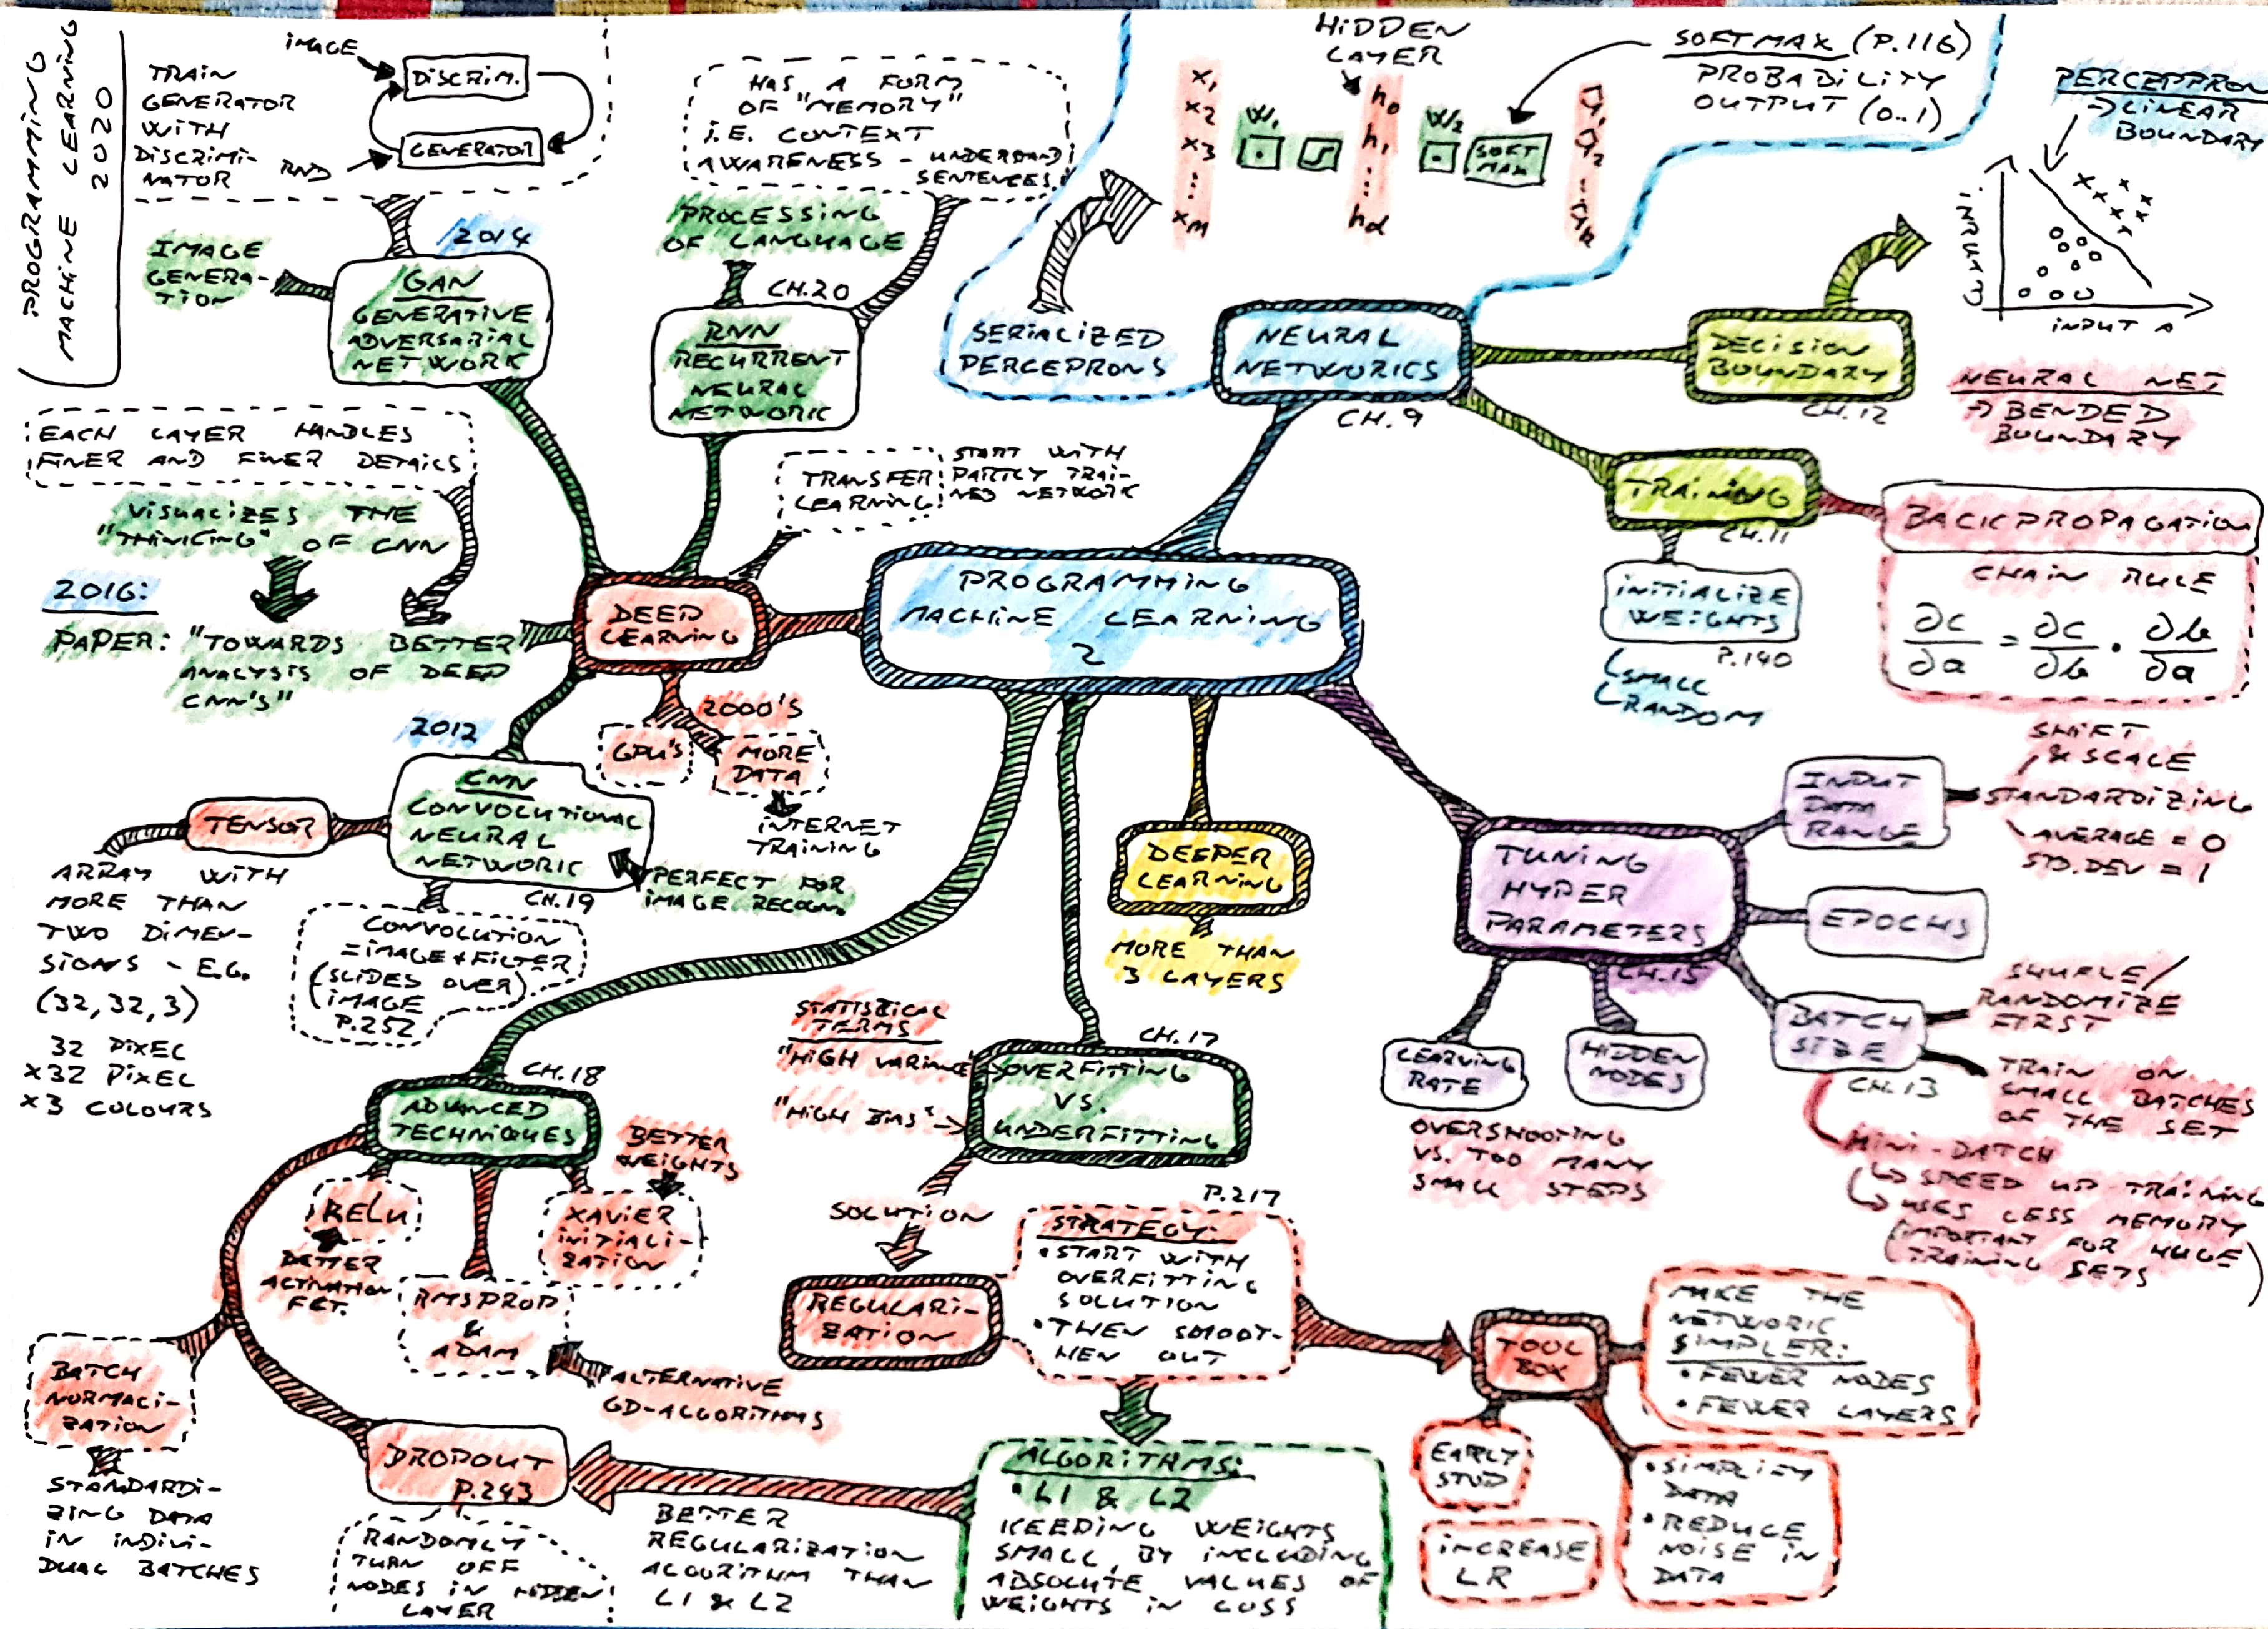 PROGRAMMING
MACHINE LEARNING
2020
TRAIN
GENERATOR
WITH
DISCRIMI-
NATOR
IMAGE
DISCRIM.
GENERATOR
RND
IMAGE
GENERA-
TION
2014
GAN
GENERATIVE
ADVERSARIAL
NETWORK
HAS A FORM
OF "MEMORY"
I.E. CONTEXT
AWARENESS - UNDERSTAND
SENTENCES
PROCESSING
OF LANGUAGE
CH.20
RNN
RECURRENT
NEURAL
NETWORK
HIDDEN
LAYER
SOFTMAX (P.116)
PROBABILITY
OUTPUT (0..1)
x1
x2
x3
...
xm
W1
h0
h1
...
hd
W2
SOFT
MAX
ŷ1
ŷ2
...
ŷk
SERIALIZED
PERCEPRONS
NEURAL
NETWORKS
CH.9
PERCEPPRON
→ LINEAR
BOUNDARY
INPUT B
INPUT A
DECISION
BOUNDARY
CH.12
NEURAL NET
→ BENDED
BOUNDARY
TRAINING
CH.11
INITIALIZE
WEIGHTS
P.140
SMALL
RANDOM
BACKPROPAGATION
CHAIN RULE
∂c/∂a = ∂c/∂b · ∂b/∂a
EACH LAYER HANDLES
FINER AND FINER DETAILS
VISUALIZES THE
"THINKING" OF CNN
2016:
PAPER: "TOWARDS BETTER
ANALYSIS OF DEEP
CNN'S"
TRANSFER
LEARNING
START WITH
PARTLY TRAI-
NED NETWORK
DEEP
LEARNING
PROGRAMMING
MACHINE LEARNING
2
2000'S
GPU'S
MORE
DATA
INTERNET
TRAINING
2012
CNN
CONVOLUTIONAL
NEURAL
NETWORK
CH.19
PERFECT FOR
IMAGE RECOGN.
TENSOR
ARRAY WITH
MORE THAN
TWO DIMEN-
SIONS - E.G.
(32, 32, 3)
32 PIXEL
x32 PIXEL
x3 COLOURS
CONVOLUTION
= IMAGE + FILTER
(SLIDES OVER)
IMAGE
P.252
DEEPER
LEARNING
MORE THAN
3 LAYERS
TUNING
HYPER
PARAMETERS
CH.15
INPUT
DATA
RANGE
SHIFT
& SCALE
STANDARDIZING
AVERAGE = 0
STD.DEV = 1
EPOCHS
BATCH
SIZE
CH.13
SHUFLE/
RANDOMIZE
FIRST
TRAIN ON
SMALL BATCHES
OF THE SET
MINI-BATCH
↳ SPEED UP TRAINING
↳ USES LESS MEMORY
(IMPORTANT FOR HUGE
TRAINING SETS)
LEARNING
RATE
OVERSHOOTING
VS. TOO MANY
SMALL STEPS
HIDDEN
NODES
STATISTICAL
TERMS
"HIGH VARIANCE"
"HIGH BIAS"
CH.17
OVERFITTING
VS.
UNDERFITTING
SOLUTION
REGULARI-
ZATION
P.217
STRATEGY:
• START WITH
OVERFITTING
SOLUTION
• THEN SMOOT-
HEN OUT
TOOL
BOX
MAKE THE
NETWORK
SIMPLER:
• FEWER NODES
• FEWER LAYERS
EARLY
STOP
INCREASE
LR
• SIMPLIFY
DATA
• REDUCE
NOISE IN
DATA
ALGORITHMS:
• L1 & L2
KEEPING WEIGHTS
SMALL, BY INCLUDING
ABSOLUTE VALUES OF
WEIGHTS IN LOSS
BETTER
REGULARIZATION
ALGORITHM THAN
L1 & L2
CH.18
ADVANCED
TECHNIQUES
RELU
BETTER
ACTIVATION
FCT.
RMSPROP
&
ADAM
ALTERNATIVE
GD-ALGORITHMS
BETTER
WEIGHTS
XAVIER
INITIALI-
ZATION
BATCH
NORMALI-
ZATION
STANDARDI-
ZING DATA
IN INDIVI-
DUAL BATCHES
DROPOUT
P.243
RANDOMLY
TURN OFF
NODES IN HIDDEN
LAYER